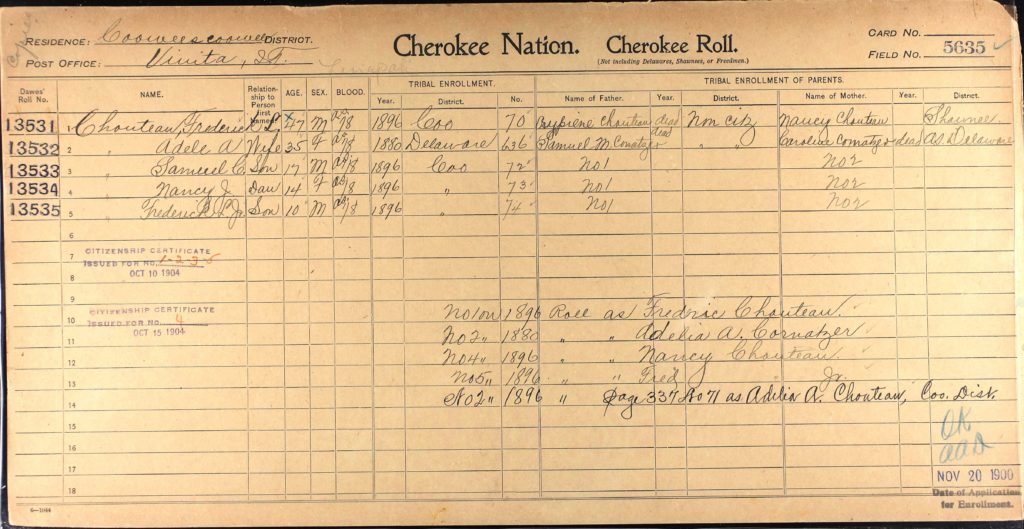 RESIDENCE: Coowees coowee DISTRICT.
POST OFFICE: Vinita, I.T.
Cherokee Nation. Cherokee Roll.
(Not including Delawares, Shawnees, or Freedmen.)
CARD NO.
FIELD NO. 5635
Dawes' Roll No. NAME. Relationship to Person first Named AGE. SEX. BLOOD. TRIBAL ENROLLMENT. Year. District. No. TRIBAL ENROLLMENT OF PARENTS. Name of Father. Year. District. Name of Mother. Year. District.
13531 1 Chouteau, Frederick L. 47 M 1896 Coo 70 Chouteau dead Non citz Nancy Chouteau Shawnee
13532 2 " Adele A Wife 35 F 1880 Delaware 636 Samuel M. Cornatzer dead " " Caroline Cornatzer dead Ad. Delaware
13533 3 " Samuel C. Son 17 M 1896 Coo 72 No1 No2
13534 4 " Nancy J. Dau 14 F 1896 " 73 No1 No2
13535 5 " Frederick L. Jr. Son 10 M 1896 " 74 No1 No2
6
7 CITIZENSHIP CERTIFICATE
ISSUED FOR No. 1-2-3-5
8 OCT 10 1904
9
10 CITIZENSHIP CERTIFICATE No1 on 1896 Roll as Fredric Chouteau.
ISSUED FOR NO. 4
11 OCT 15 1904 No2 " 1880 " " Adelia A. Cornatzer
12 No4 " 1896 " " Nancy Chouteau.
13 No5 " 1896 " " Fred " Jr.
14 No2 " 1896 " Page 337 No 71 as Adelia A. Chouteau, Coo. Dist.
15 OK
16
17 NOV 20 1900
18 Date of Application
for Enrollment.